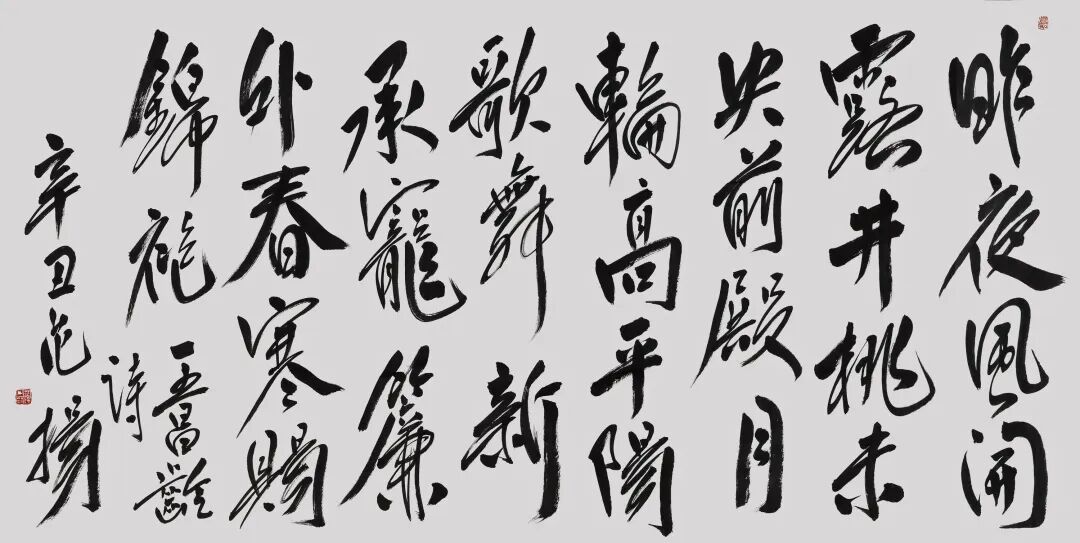 昨夜風開
露井桃未
央前殿月
輪高平陽
歌舞新
承寵簾
外春寒賜
錦袍
王昌齡
詩
辛丑范揚